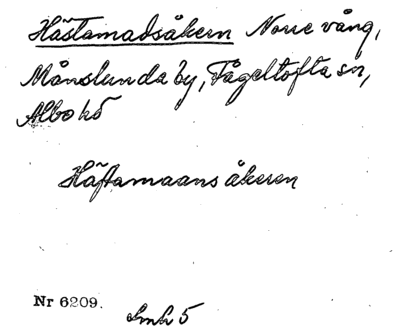 Hästamadsåkern Norre vång,
Månslunda by, Fågeltofta sn,
Albo hd
Häftamaans åkeren
Nr 6209.
Smh 5